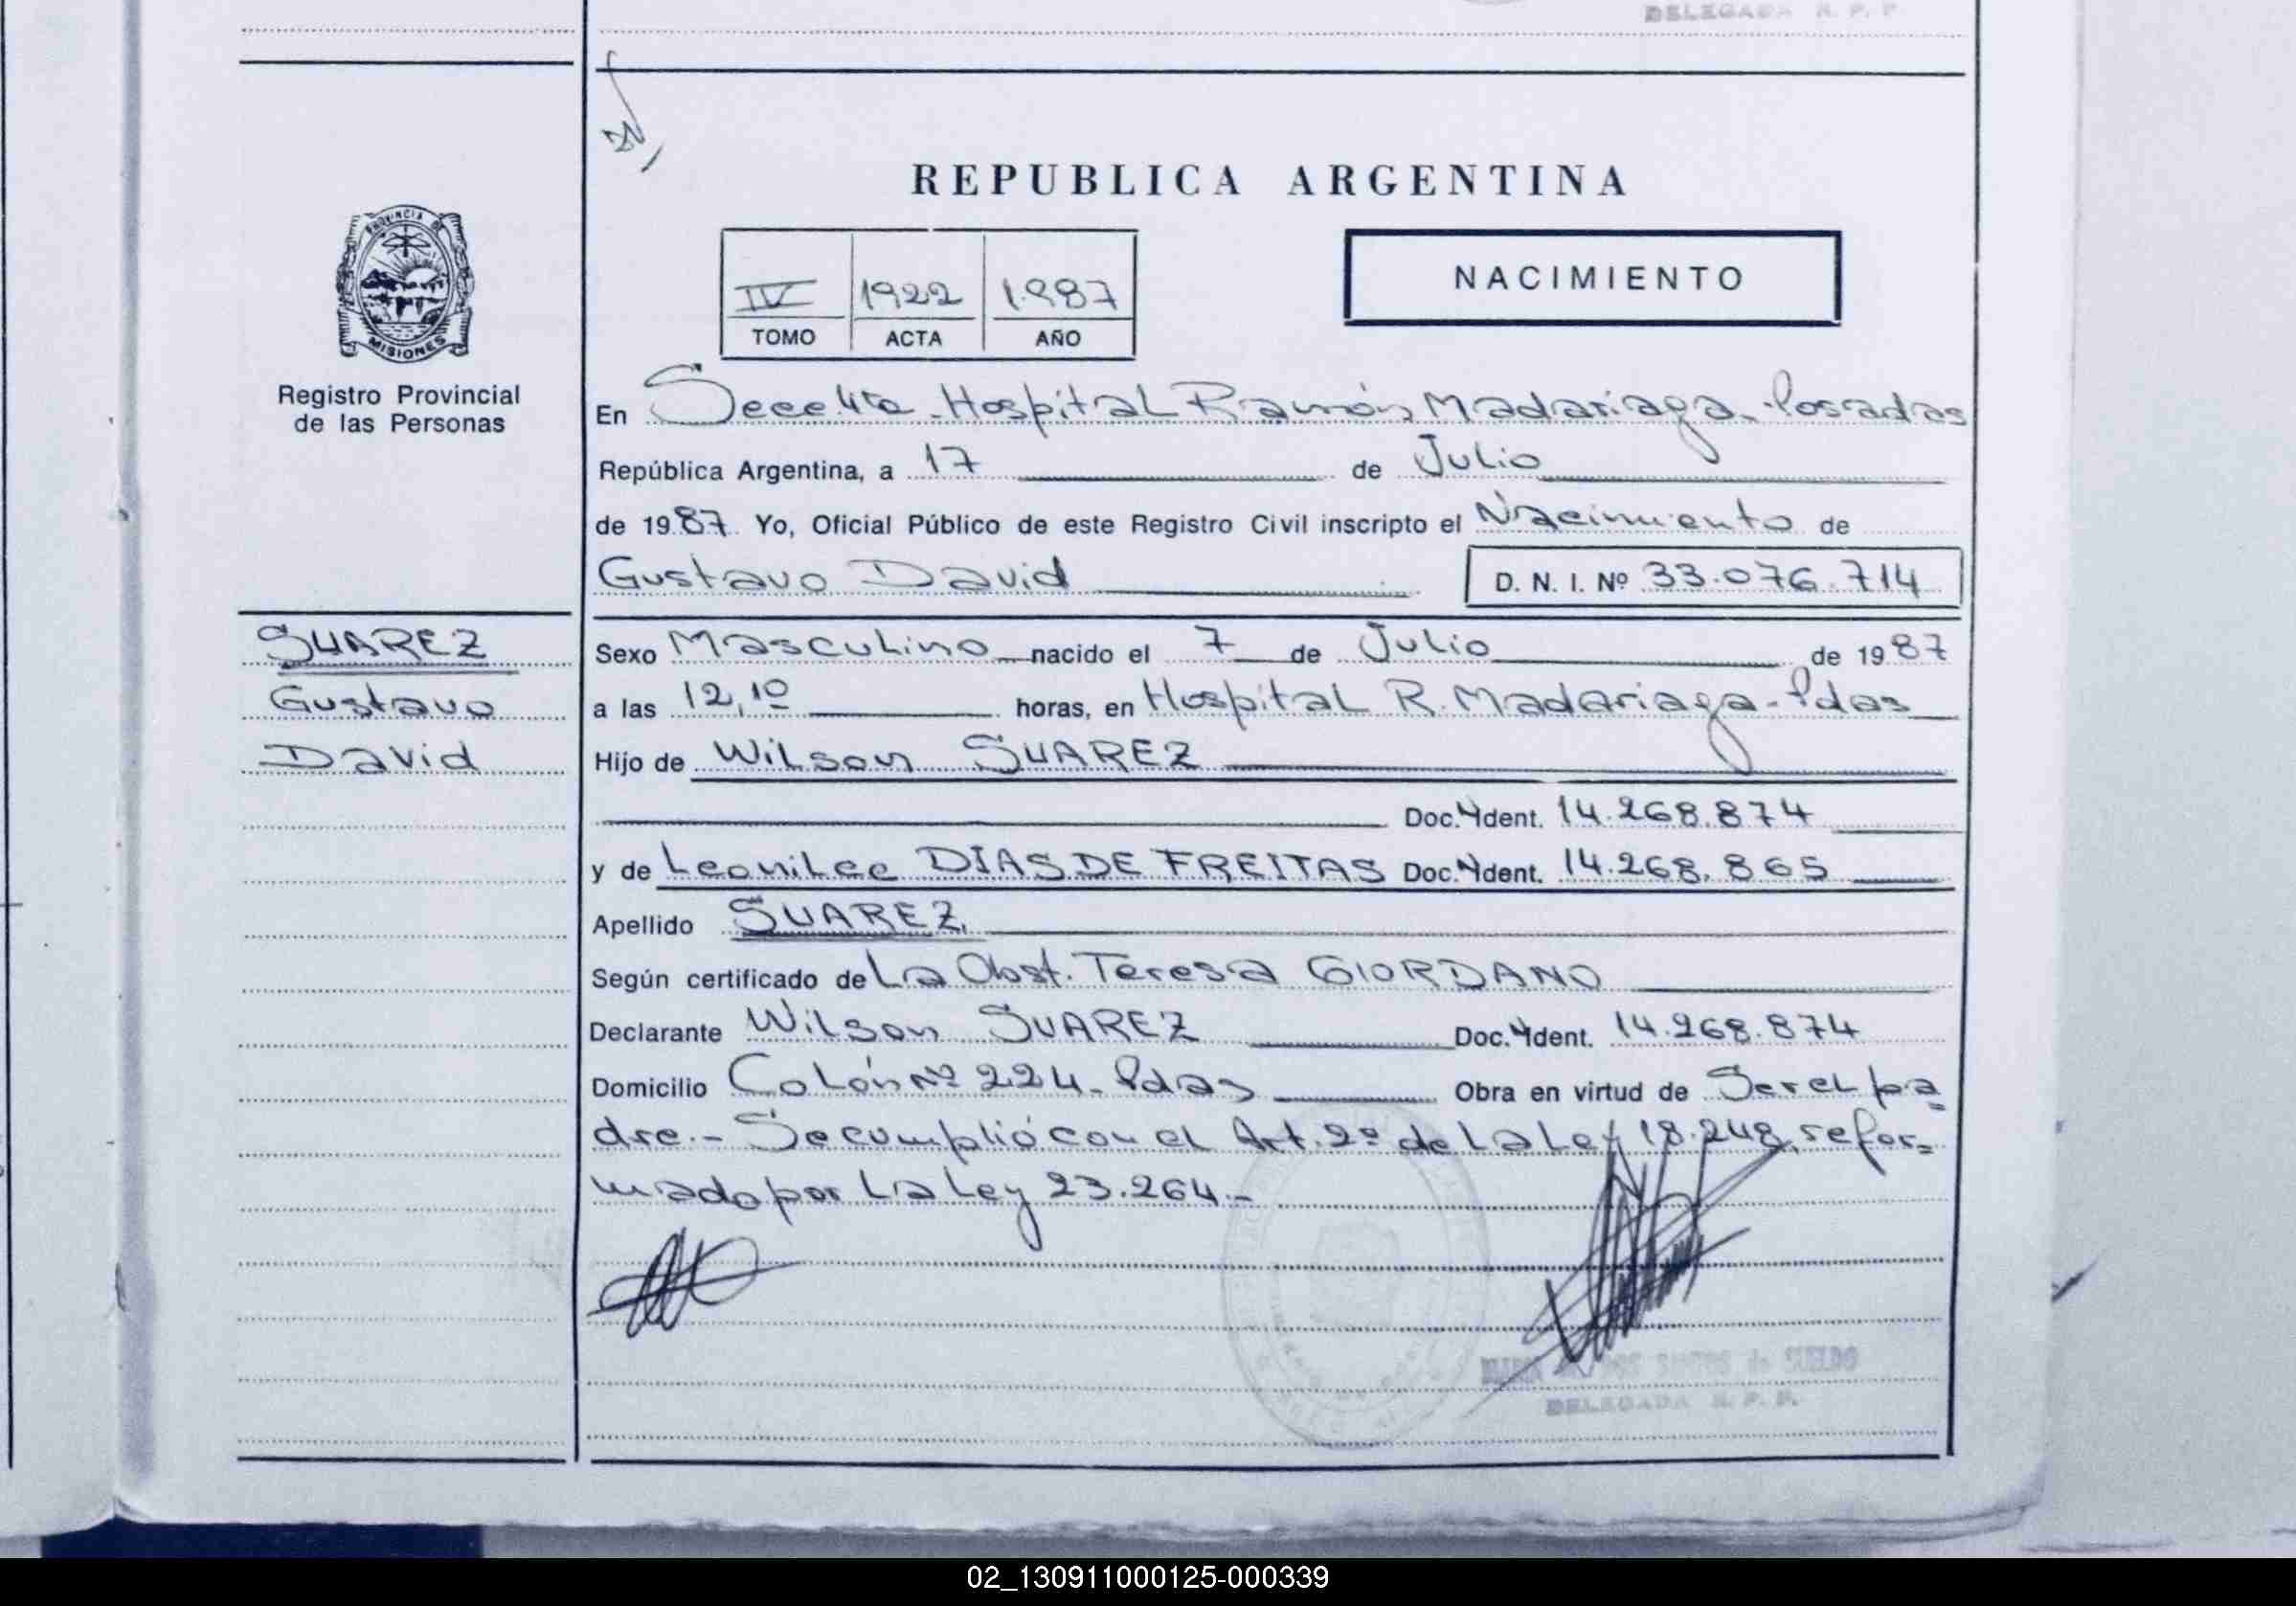 DELEGADA R. P. P.
REPUBLICA ARGENTINA
PROVINCIA DE
MISIONES
Registro Provincial
de las Personas
NACIMIENTO
IV 1922 1987
TOMO ACTA AÑO
En Secc 4ta - Hospital Ramón Madariaga - Posadas
República Argentina, a 17 de Julio
de 1987. Yo, Oficial Público de este Registro Civil inscripto el Nacimiento de
Gustavo David D. N. I. Nº 33.076.714
SUAREZ
Gustavo
David
Sexo Masculino nacido el 7 de Julio de 1987
a las 12,10 horas, en Hospital R. Madariaga - Pdas
Hijo de Wilson SUAREZ
Doc. Ident. 14.268.874
y de Leonilce DIAS DE FREITAS Doc. Ident. 14.268.865
Apellido SUAREZ
Según certificado de La Obst. Teresa GIORDANO
Declarante Wilson SUAREZ Doc. Ident. 14.268.874
Domicilio Colón Nº 224 - Pdas Obra en virtud de Ser el pa
dre.- Se cumplió con el Art. 2º de La Ley 18.248, refor=
mado por La Ley 23.264.-
SANTOS de SUELDO
DELEGADA R. P. P.
02_130911000125-000339